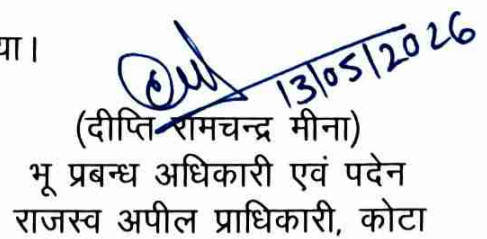 या।
13/05/2026
(दीप्ति रामचन्द्र मीना)
भू प्रबन्ध अधिकारी एवं पदेन
राजस्व अपील प्राधिकारी, कोटा